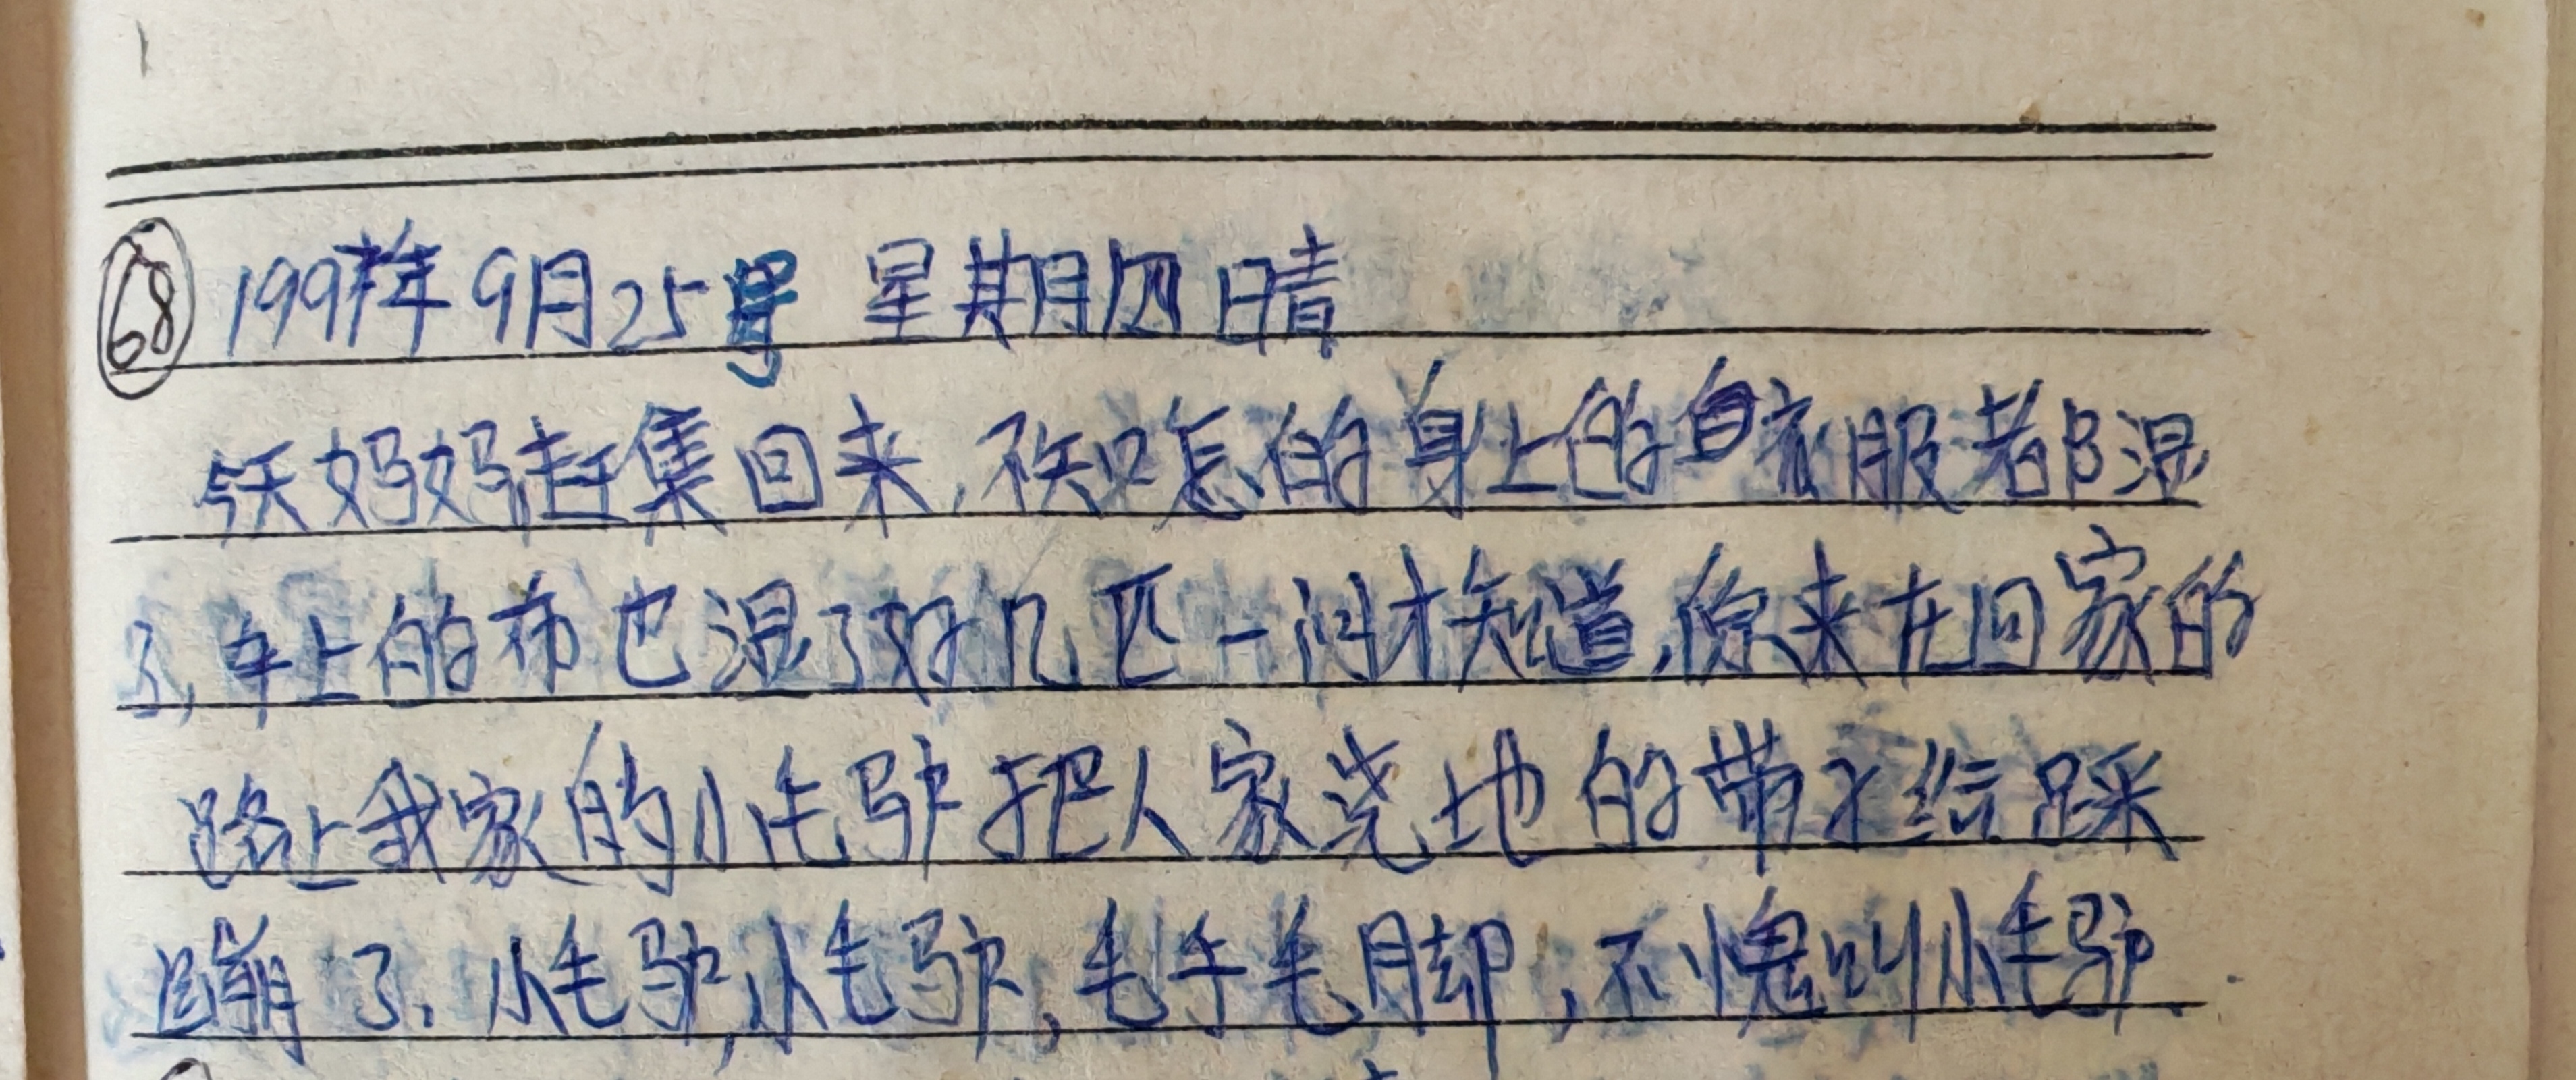 68 1997年9月25号 星期四 晴
天妈妈赶集回来,不知怎的身上的衣服都湿
了,车上的布也湿了好几匹一问才知道,原来在回家的
路上我家的小毛驴把人家浇地的带子给踩
崩了.小毛驴,小毛驴,毛手毛脚,不愧叫小毛驴.